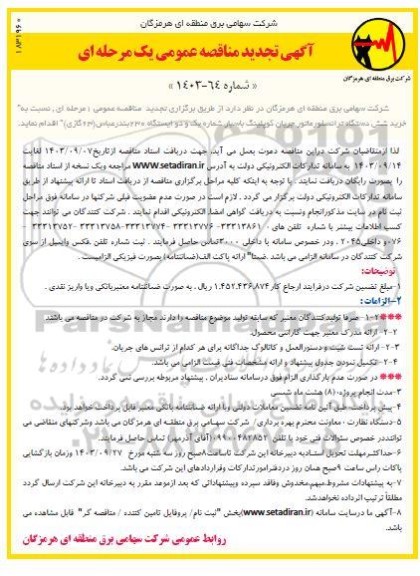 شرکت سهامی برق منطقه ای هرمزگان
۱۸۳۱۹۶۰
آگهی تجدید مناقصه عمومی یک مرحله ای
شرکت برق منطقه ای هرمزگان
« شماره ۶۴-۱۴۰۳ »
شرکت سهامی برق منطقه ای هرمزگان در نظر دارد از طریق برگزاری تجدید مناقصه عمومی ۱ مرحله ای، نسبت به"
خرید شش دستگاه ترانسفورماتور جریان کوپلینگ باسبار شماره یک و دو ایستگاه ۲۳۰ بندرعباس (۲۳۰گازی)" اقدام نماید.
لذا ازمتقاضیان شرکت دراین مناقصه دعوت بعمل می آید، جهت دریافت اسناد مناقصه ازتاریخ ۱۴۰۳/۰۹/۰۷ لغایت
۱۴۰۳/۰۹/۱۴ به سامانه تدارکات الکترونیکی دولت به آدرس www.setadiran.ir مراجعه ویک نسخه از اسناد مناقصه
را بصورت رایگان دریافت نمایند. با توجه به اینکه کلیه مراحل برگزاری مناقصه از دریافت اسناد تا ارائه پیشنهاد از طریق
سامانه تدارکات الکترونیکی دولت برگزار می گردد، لازم است در صورت عدم عضویت قبلی شرکتها در سامانه فوق مراحل
ثبت نام در سایت مذکورانجام ونسبت به دریافت گواهی امضا الکترونیکی اقدام نمایند. شرکت کنندگان می توانند جهت
کسب اطلاعات بیشتر با شماره تلفن های ۳۳۳۱۳۸۶۱- ۳۳۳۱۳۷۷۶- ۳۳۳۱۳۷۷۴- ۳۳۳۱۳۷۵۸- ۳۳۳۱۳۷۵۲ -
۷۶ و داخلی ۲۰۴۵، ودر خصوص سامانه با داخلی ۳۰۰۰ تماس حاصل فرمایند. ثبت شماره تلفن، فکس وایمیل از سوی
شرکت کنندگان در سامانه الزامی می باشد. ضمنا" ارائه پاکت الف(ضمانتنامه) بصورت فیزیکی الزامیست.
توضیحات:
۱-مبلغ تضمین شرکت درفرایند ارجاع کار ۱.۴۵۲.۴۳۶.۸۷۴ ریال، به صورت ضمانتنامه معتبربانکی ویا واریز نقدی.
۲-الزامات:
***۲-۱- صرفا تولیدکنندگان معتبر که سابقه تولید موضوع مناقصه را دارند مجاز به شرکت در مناقصه می باشند.
۲-۲- ارائه مدرک معتبر جهت گارانتی محصول.
۲-۳- ارائه تست شیت و دستورالعمل و کاتالوگ جداگانه برای هر کدام از ترانس های جریان.
۲-۴- تکمیل نمودن جدول پیشنهاد و ارائه مشخصات فنی قیمت الزامی می باشد.
*** در صورت عدم بارگذاری الزام فوق درسامانه ستادایران، پیشنهاد مربوطه بررسی نمی گردد.
۳-مدت انجام پروژه: (۸) هشت ماه شمسی
۴- پیش پرداخت طبق آئین نامه تضمین معاملات دولتی وبا ارائه ضمانتنامه بانکی معتبر قابل پرداخت خواهد بود.
۵-دستگاه نظارت: معاونت محترم بهره برداری/ شرکت سهامی برق منطقه ای هرمزگان می باشد وشرکتهای متقاضی می
توانند در خصوص سئوالات فنی خود با تلفن ۰۹۹۰۰۴۸۲۸۵۲ (آقای آذرمهر) تماس حاصل فرمایند.
۶-حداکثر مهلت تحویل اسنادبه دبیرخانه این شرکت تاساعت ۸صبح روز سه شنبه مورخ ۱۴۰۳/۰۹/۲۷ وزمان بازگشایی
پاکات راس ساعت ۹صبح همان روز دردفترامورتدارکات وقراردادهای این شرکت می باشد.
۷-به پیشنهادات مشروط،مبهم،مخدوش وفاقد سپرده وپیشنهاداتی که بعد ازموعد مقرر به دبیرخانه این شرکت ارسال گردد
مطلقاً ترتیب اثرداده نخواهدشد.
۸-آگهی ما درسایت سامانه (www.setadiran.ir)بخش "ثبت نام/ پروفایل تامین کننده / مناقصه گر" قابل مشاهده می
باشد.
روابط عمومی شرکت سهامی برق منطقه ای هرمزگان